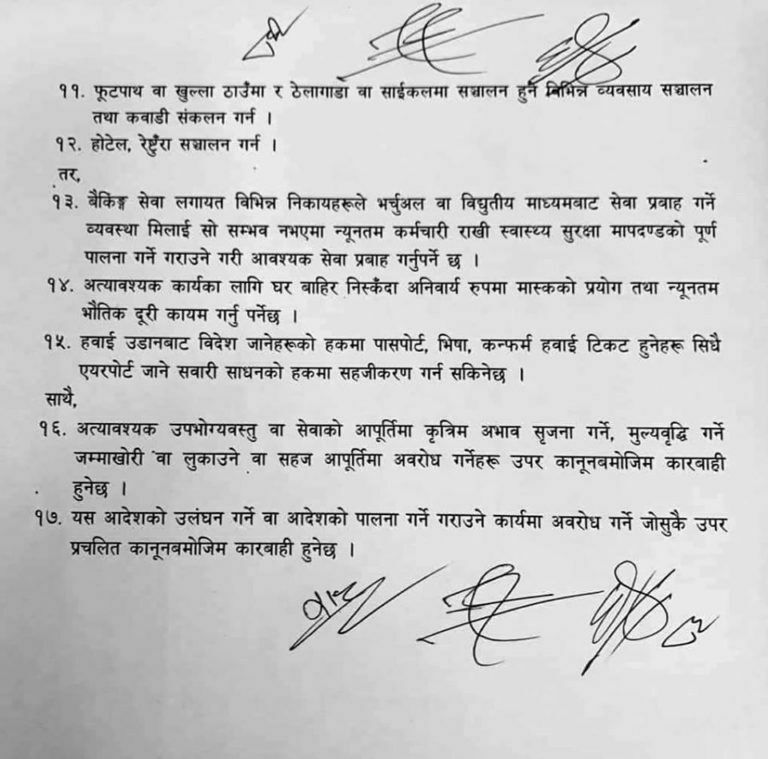 ११. फूटपाथ वा खुल्ला ठाउँमा र ठेलागाडा वा साईकलमा सञ्चालन हुने विभिन्न व्यवसाय सञ्चालन
तथा कवाडी संकलन गर्न ।
१२. होटेल, रेष्टुँरा सञ्चालन गर्न ।
तर,
१३. बैकिङ्ग सेवा लगायत विभिन्न निकायहरूले भर्चुअल वा विद्युतीय माध्यमबाट सेवा प्रवाह गर्ने
व्यवस्था मिलाई सो सम्भव नभएमा न्यूनतम कर्मचारी राखी स्वास्थ्य सुरक्षा मापदण्डको पूर्ण
पालना गर्ने गराउने गरी आवश्यक सेवा प्रवाह गर्नुपर्ने छ ।
१४. अत्यावश्यक कार्यका लागि घर बाहिर निस्कँदा अनिवार्य रुपमा मास्कको प्रयोग तथा न्यूनतम
भौतिक दूरी कायम गर्नु पर्नेछ ।
१५. हवाई उडानबाट विदेश जानेहरूको हकमा पासपोर्ट, भिषा, कन्फर्म हवाई टिकट हुनेहरू सिधै
एयरपोर्ट जाने सवारी साधनको हकमा सहजीकरण गर्न सकिनेछ ।
साथै,
१६. अत्यावश्यक उपभोग्यवस्तु वा सेवाको आपूर्तिमा कृत्रिम अभाव सृजना गर्ने, मुल्यवृद्धि गर्ने
जम्माखोरी वा लुकाउने वा सहज आपूर्तिमा अवरोध गर्नेहरू उपर कानूनबमोजिम कारबाही
हुनेछ ।
१७. यस आदेशको उलंघन गर्ने वा आदेशको पालना गर्ने गराउने कार्यमा अवरोध गर्ने जोसुकै उपर
प्रचलित कानूनबमोजिम कारबाही हुनेछ ।